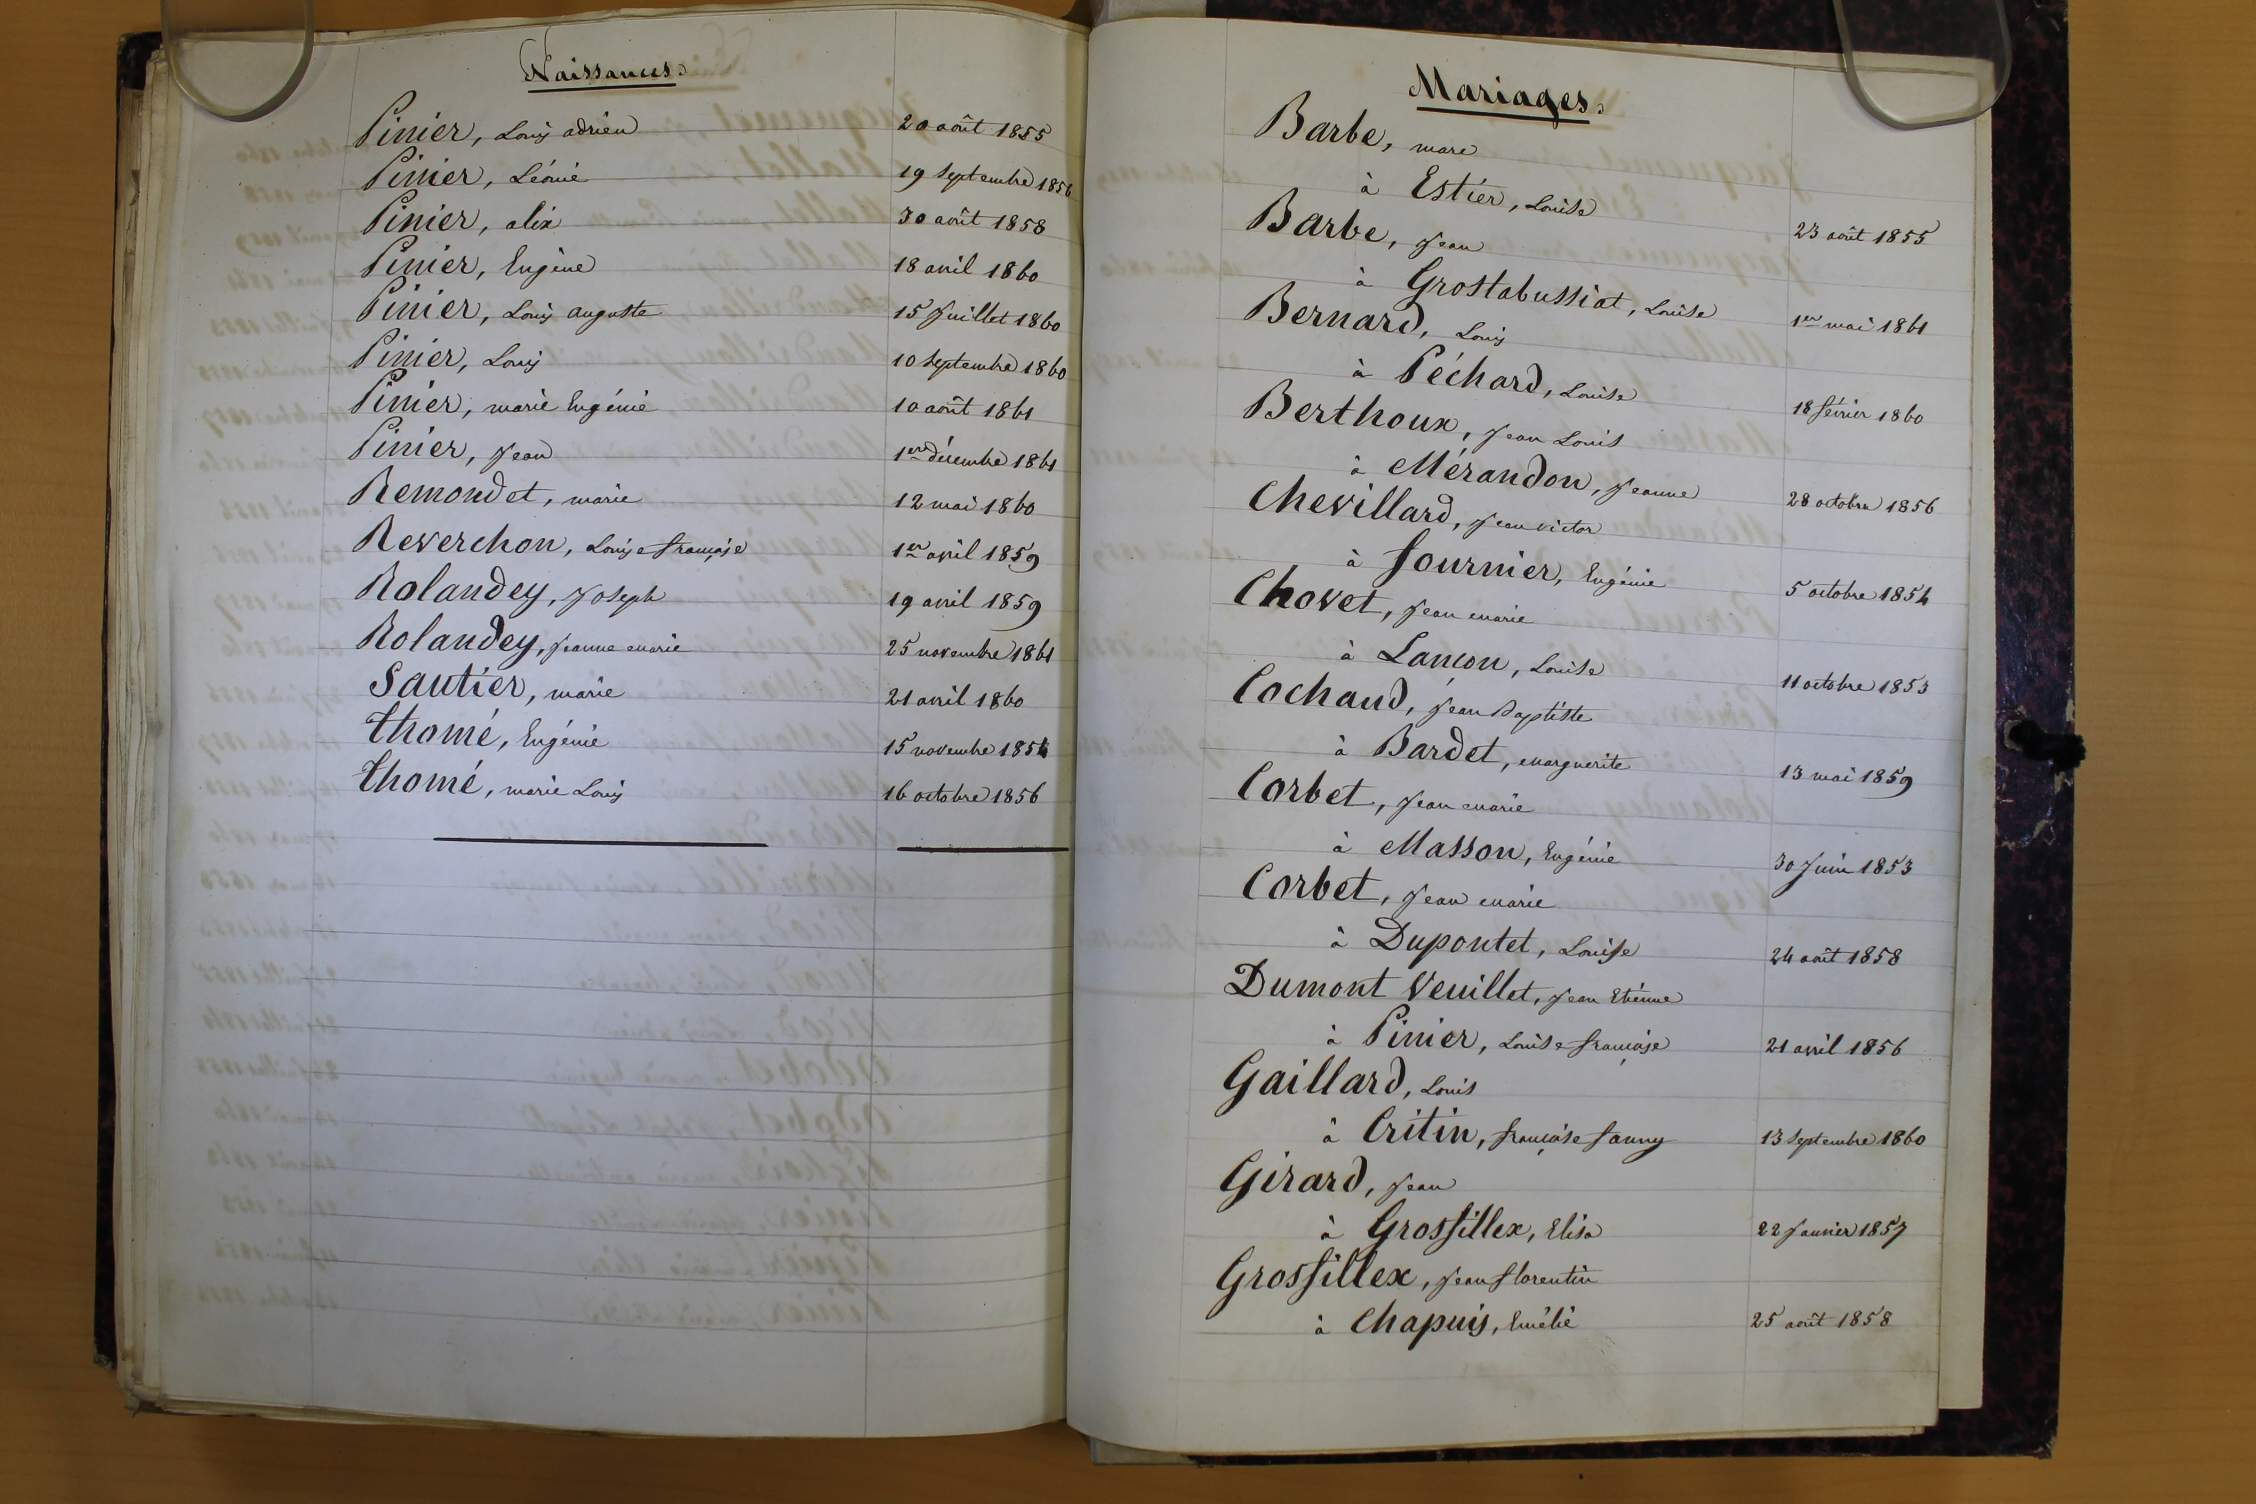 Naissances.
Pinier, Louis adrien 20 août 1855
Pinier, Léonie 19 septembre 1856
Pinier, alix 30 août 1858
Pinier, Eugène 18 avril 1860
Pinier, Louis auguste 15 Juillet 1860
Pinier, Louis 10 septembre 1860
Pinier, marie Eugénie 10 août 1861
Pinier, Jean 1er décembre 1861
Remondet, marie 12 mai 1860
Reverchon, Louise françoise 1er avril 1859
Rolandey, Joseph 19 avril 1859
Rolandey, Jeanne marie 25 novembre 1861
Sautier, marie 21 avril 1860
thomé, Eugénie 15 novembre 1854
thomé, marie Louis 16 octobre 1856
Mariages.
Barbe, marc
à Estier, Louise 23 août 1855
Barbe, Jean
à Grostabussiat, Louise 1er mai 1861
Bernard, Louis
à Péchard, Louise 18 février 1860
Berthoux, Jean Louis
à Mérandon, Jeanne 28 octobre 1856
Chevillard, Jean victor
à fournier, Eugénie 5 octobre 1854
Chovet, Jean marie
à Lançon, Louise 11 octobre 1853
Cochaud, Jean Baptiste
à Bardet, marguerite 13 mai 1859
Corbet, Jean marie
à Masson, Eugénie 30 Juin 1853
Corbet, Jean marie
à Dupontet, Louise 24 août 1858
Dumont Veuillet, Jean Etienne
à Pinier, Louise françoise 21 avril 1856
Gaillard, Louis
à Critin, françoise fanny 13 septembre 1860
Girard, Jean
à Grosfillex, Elisa 22 Janvier 1857
Grosfillex, Jean florentin
à Chapuis, Emélie 25 août 1858